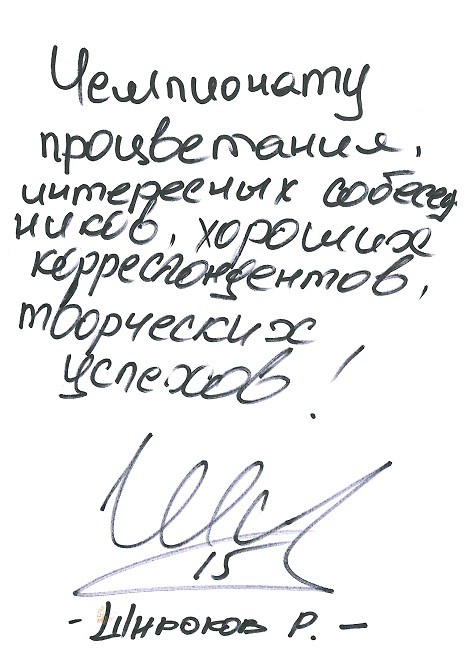 Чемпионату
процветания,
интересных собесед
ников, хороших
корреспондентов,
творческих
успехов!
15
- Широков Р. -